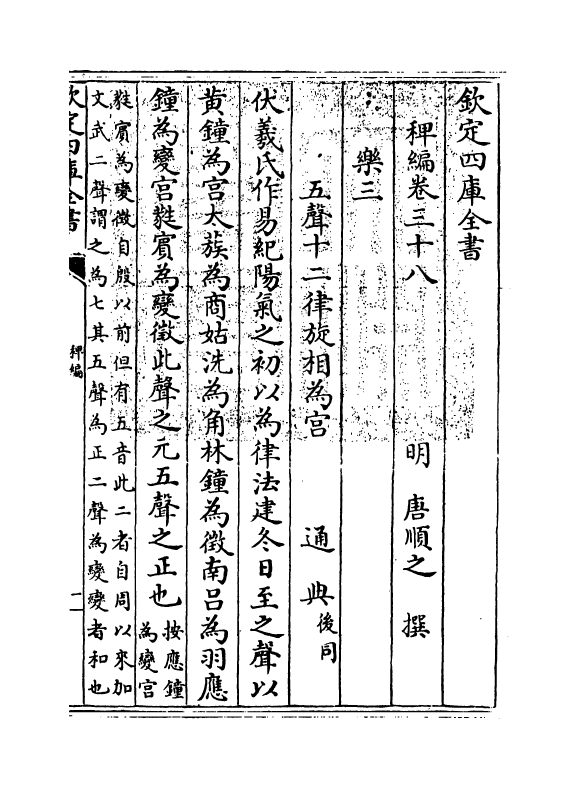 欽定四庫全書
稗編卷三十八
明 唐順之 撰
樂三
五聲十二律旋相為宮
通典後同
伏羲氏作易紀陽氣之初以為律法建冬日至之聲以
黃鐘為宮太蔟為商姑洗為角林鐘為徵南呂為羽應
鐘為變宮蕤賓為變徵此聲之元五聲之正也
按應鐘
為變宮
蕤賓為變徵自殷以前但有五音此二者自周以來加
文武二聲謂之為七其五聲為正二聲為變變者和也
欽定四庫全書
稗編
一